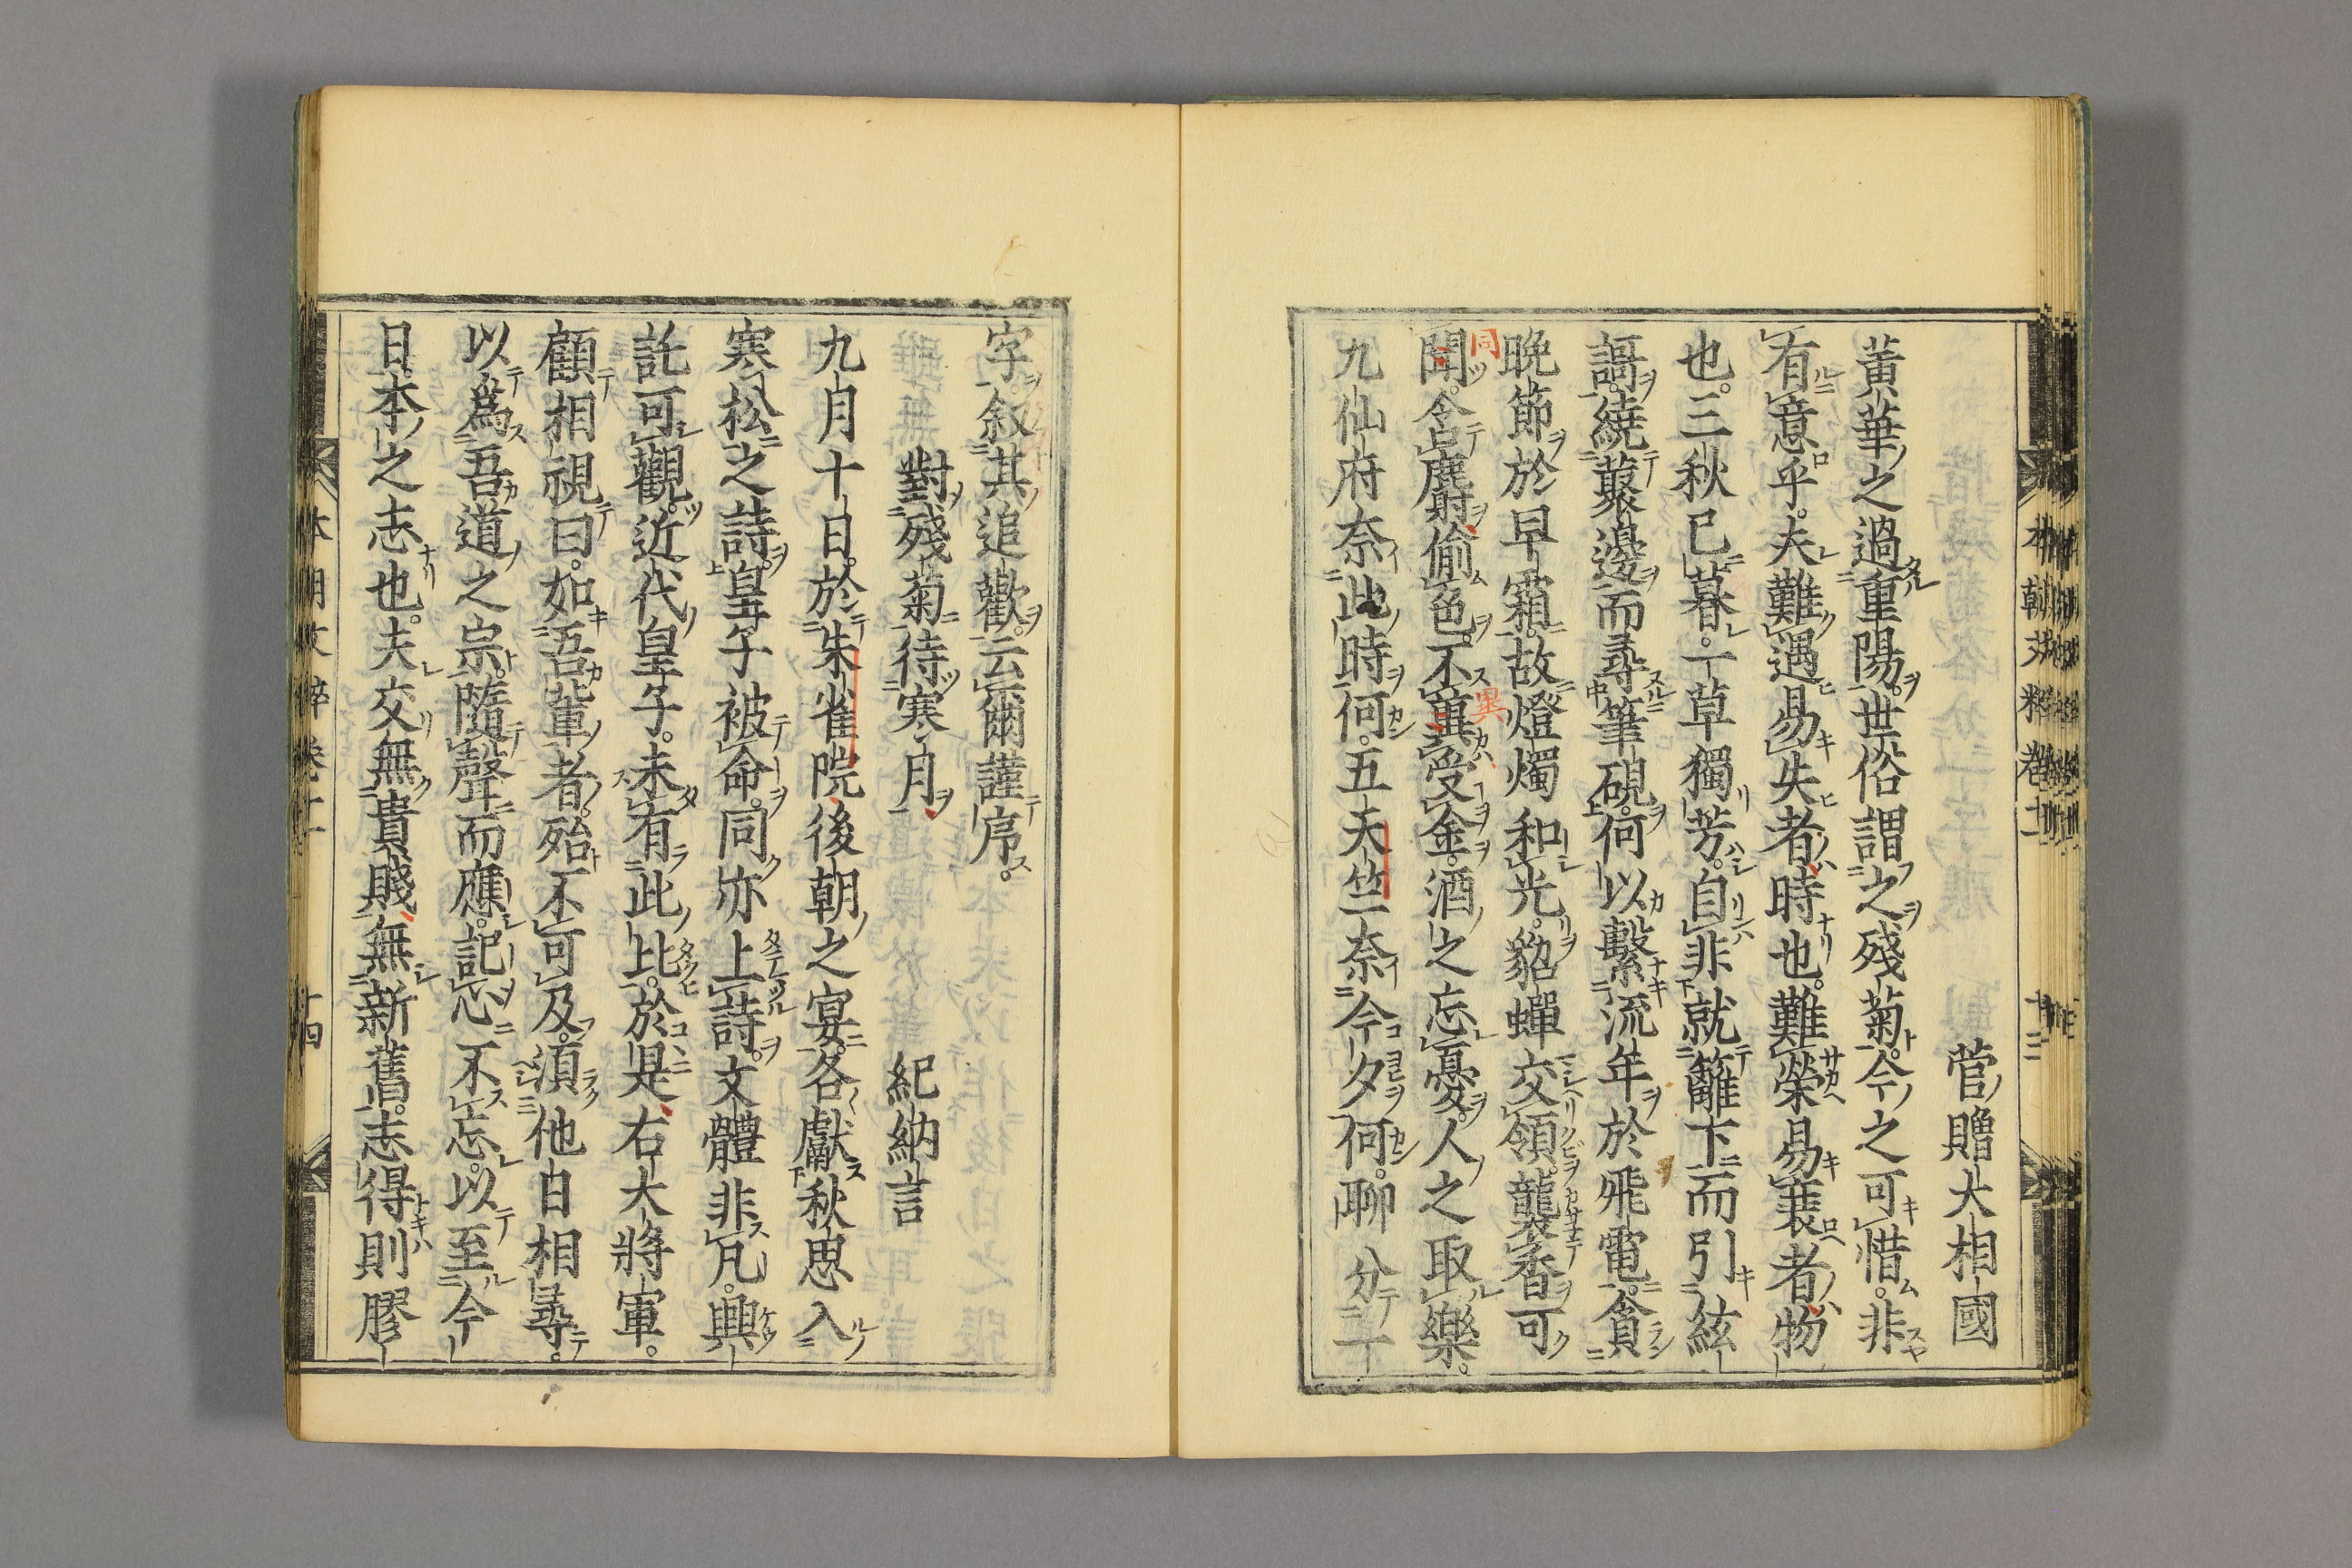 菅贈大相國
黃華之過重陽世俗謂之殘菊今之可惜非
有意乎夫難遇易失者時也難榮易衰者物
也三秋已暮一草獨芳自非就籬下而引絃
謌繞藂邊而尋筆硯何以繫流年於飛電貪
晚節於早霜故燈燭和光貂蟬交領襲香可
同
聞令麝偷色不糞受金酒之忘憂人之取樂
異
九仙府奈此時何五天竺奈今夕何聊分一
字叙其追歡云爾謹序
對殘菊待寒月
紀納言
九月十日於朱雀院後朝之宴各獻秋思入
寒松之詩皇子被命同亦上詩文體非凡興
託可觀近代皇子未有此比於是右大將軍
顧相視曰如吾輩者殆不可及須他日相尋
以為吾道之宗隨聲而應記心不忘以至今
日本之志也夫交無貴賤無新舊志得則膠